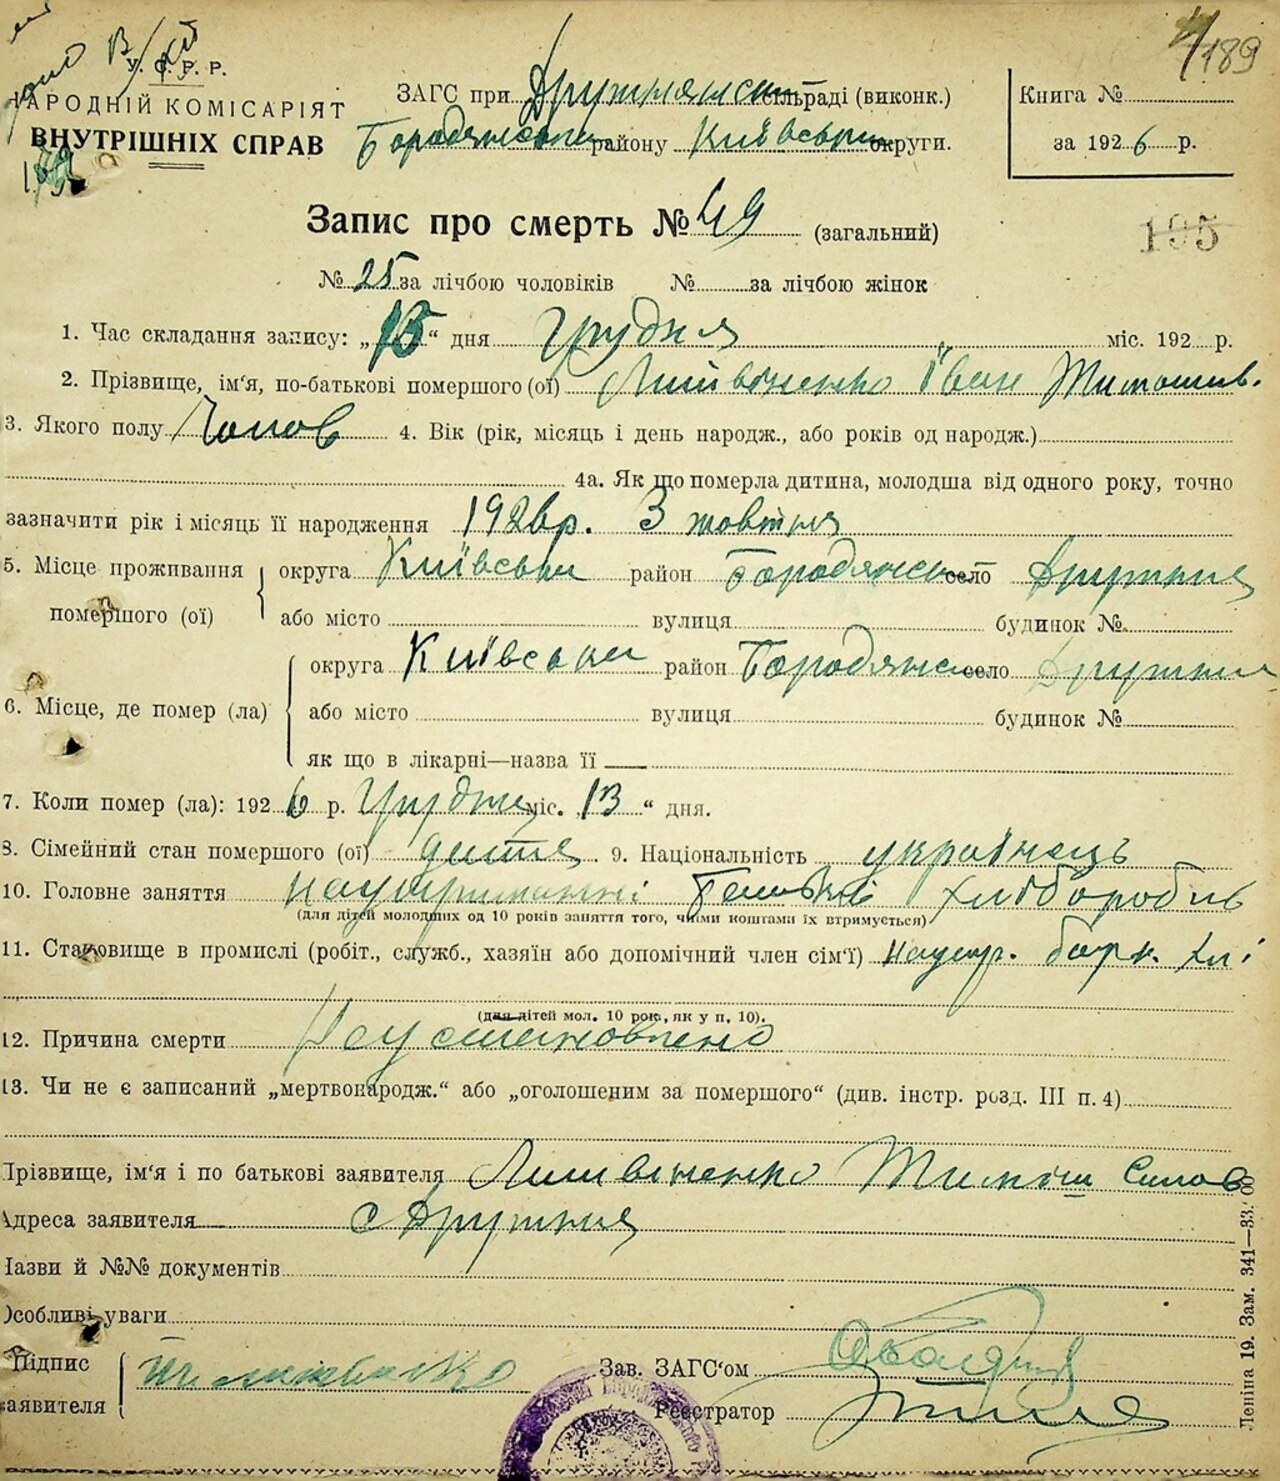 189
У. С. Р. Р.
НАРОДНІЙ КОМІСАРІЯТ
ВНУТРІШНІХ СПРАВ
ЗАГС при Дружнянськ сільраді (виконк.)
Бородянськи району Київськи округи.
Книга №
за 1926 р.
Запис про смерть № 49 (загальний)
195
№ 25 за лічбою чоловіків № за лічбою жінок
1. Час складання запису: „15“ дня Грудня міс. 192 р.
2. Прізвище, ім'я, по-батькові помершого (ої) Литвиненко Іван Тимошив.
3. Якого полу Чолов 4. Вік (рік, місяць і день народж., або років од народж.)
4а. Як що померла дитина, молодша від одного року, точно
зазначити рік і місяць її народження 1926р. 3 жовтня
5. Місце проживання помершого (ої) округа Київськи район Бородянськ село Дружня
або місто вулиця будинок №
6. Місце, де помер (ла) округа Київськи район Бородянськ село Дружня
або місто вулиця будинок №
як що в лікарні—назва її
7. Коли помер (ла): 1926 р. Грудня міс. 13“ дня.
8. Сімейний стан помершого (ої) дитя 9. Національність українець
10. Головне заняття на утриманні батьків хліборобів
(для дітей молодших од 10 років заняття того, чиїми коштами їх втримується)
11. Становище в промислі (робіт., служб., хазяїн або допомічний член сім'ї) на утр. батьк. хлі
(для дітей мол. 10 рок., як у п. 10).
12. Причина смерти Неустановлено
13. Чи не є записаний „мертвонародж.“ або „оголошеним за помершого“ (див. інстр. розд. III п. 4)
Прізвище, ім'я і по батькові заявителя Литвиненко Тиміш Силов
Адреса заявителя с Дружня
Назви й №№ документів
Особливі уваги
Підпис заявителя
Зав. ЗАГС'ом
Реєстратор
Леніна 19. Зам. 341—33.